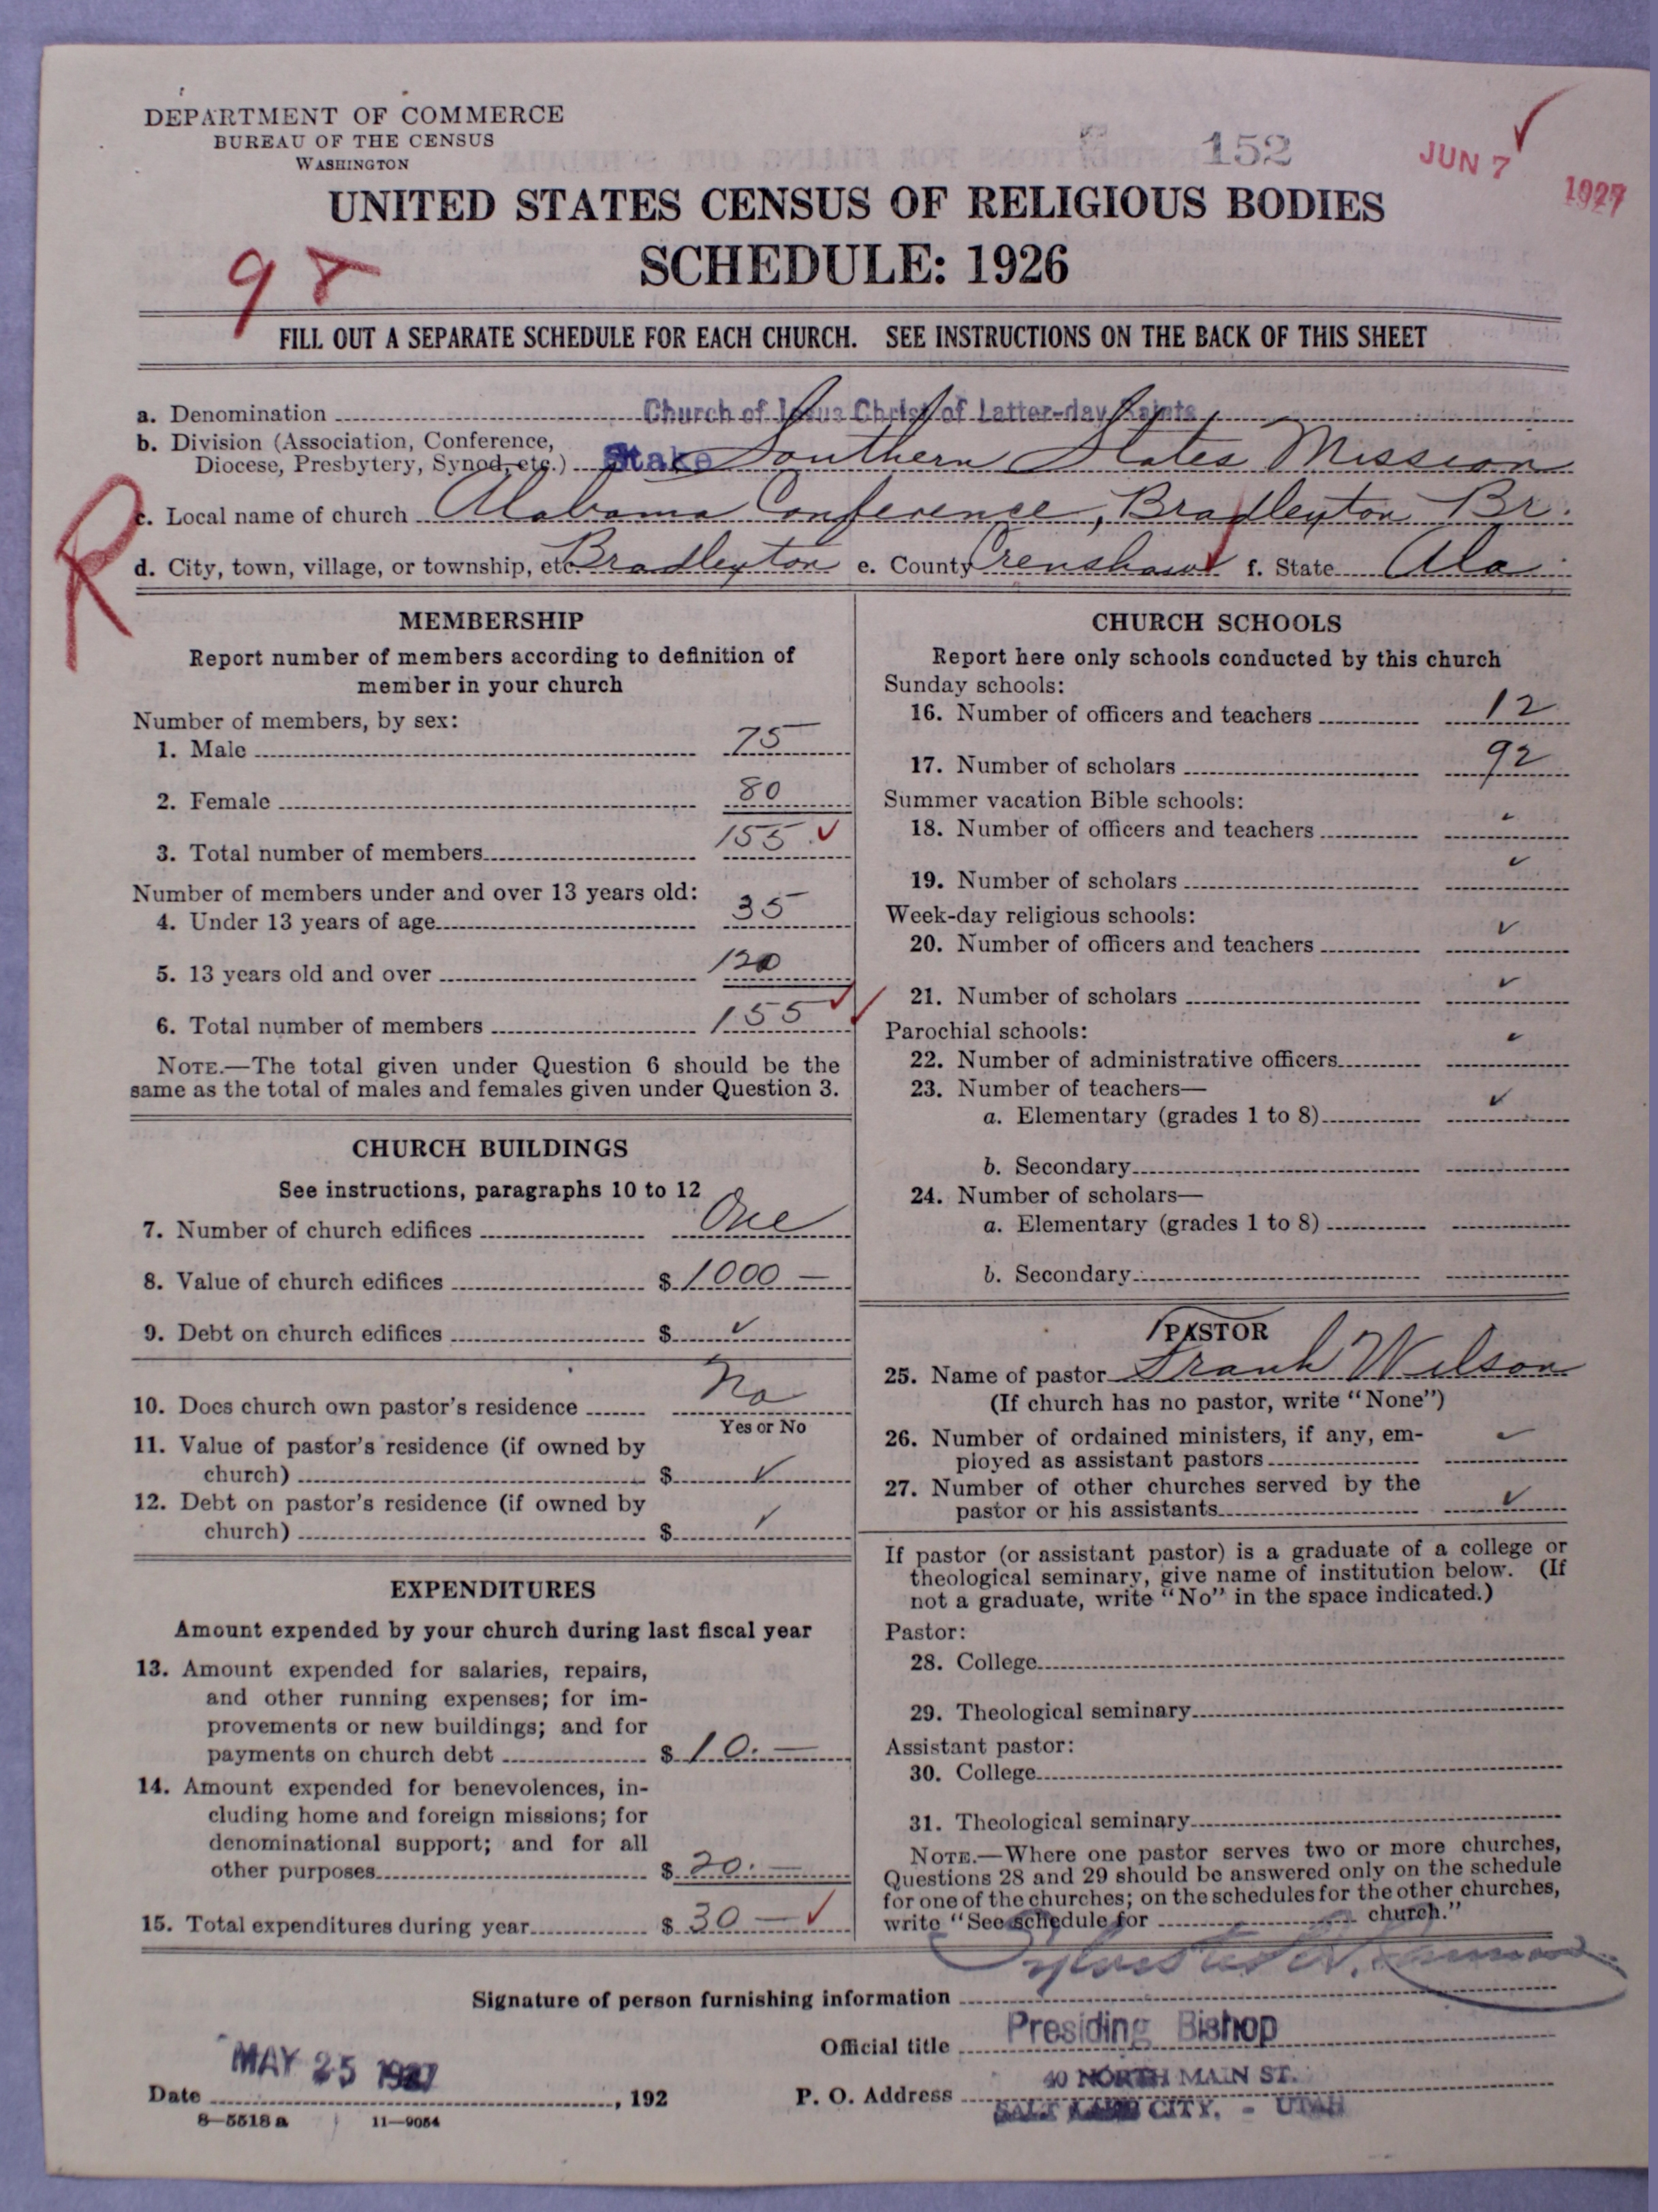 DEPARTMENT OF COMMERCE
BUREAU OF THE CENSUS
WASHINGTON
152
JUN 7 1927
UNITED STATES CENSUS OF RELIGIOUS BODIES
SCHEDULE: 1926
FILL OUT A SEPARATE SCHEDULE FOR EACH CHURCH. SEE INSTRUCTIONS ON THE BACK OF THIS SHEET
R
a. Denomination Church of Jesus Christ of Latter-day Saints
b. Division (Association, Conference,
Diocese, Presbytery, Synod, etc.) Stake Southern States Mission
c. Local name of church Alabama Conference, Bradleyton Br.
d. City, town, village, or township, etc. Bradleyton e. County Crenshaw f. State Ala
MEMBERSHIP
Report number of members according to definition of
member in your church
Number of members, by sex:
1. Male 75
2. Female 80
3. Total number of members 155 ✓
Number of members under and over 13 years old:
4. Under 13 years of age 35
5. 13 years old and over 120
6. Total number of members 155 ✓
NOTE.—The total given under Question 6 should be the
same as the total of males and females given under Question 3.
CHURCH BUILDINGS
See instructions, paragraphs 10 to 12
7. Number of church edifices One
8. Value of church edifices $ 1000 —
9. Debt on church edifices $ ✓
10. Does church own pastor's residence No
Yes or No
11. Value of pastor's residence (if owned by
church) $ ✓
12. Debt on pastor's residence (if owned by
church) $ ✓
EXPENDITURES
Amount expended by your church during last fiscal year
13. Amount expended for salaries, repairs,
and other running expenses; for im-
provements or new buildings; and for
payments on church debt $ 10. —
14. Amount expended for benevolences, in-
cluding home and foreign missions; for
denominational support; and for all
other purposes $ 20. —
15. Total expenditures during year $ 30 — ✓
CHURCH SCHOOLS
Report here only schools conducted by this church
Sunday schools:
16. Number of officers and teachers 12
17. Number of scholars 92
Summer vacation Bible schools:
18. Number of officers and teachers ✓
19. Number of scholars ✓
Week-day religious schools:
20. Number of officers and teachers ✓
21. Number of scholars ✓
Parochial schools:
22. Number of administrative officers ✓
23. Number of teachers—
a. Elementary (grades 1 to 8) ✓
b. Secondary
24. Number of scholars—
a. Elementary (grades 1 to 8)
b. Secondary
PASTOR
25. Name of pastor Frank Wilson
(If church has no pastor, write "None")
26. Number of ordained ministers, if any, em-
ployed as assistant pastors ✓
27. Number of other churches served by the
pastor or his assistants ✓
If pastor (or assistant pastor) is a graduate of a college or
theological seminary, give name of institution below. (If
not a graduate, write "No" in the space indicated.)
Pastor:
28. College
29. Theological seminary
Assistant pastor:
30. College
31. Theological seminary
NOTE.—Where one pastor serves two or more churches,
Questions 28 and 29 should be answered only on the schedule
for one of the churches; on the schedules for the other churches,
write "See schedule for church."
Signature of person furnishing information Sylvester Q. Cannon
Official title Presiding Bishop
Date MAY 25 1927, 192
P. O. Address 40 NORTH MAIN ST.
SALT LAKE CITY, - UTAH
8—5518 a 11—9054